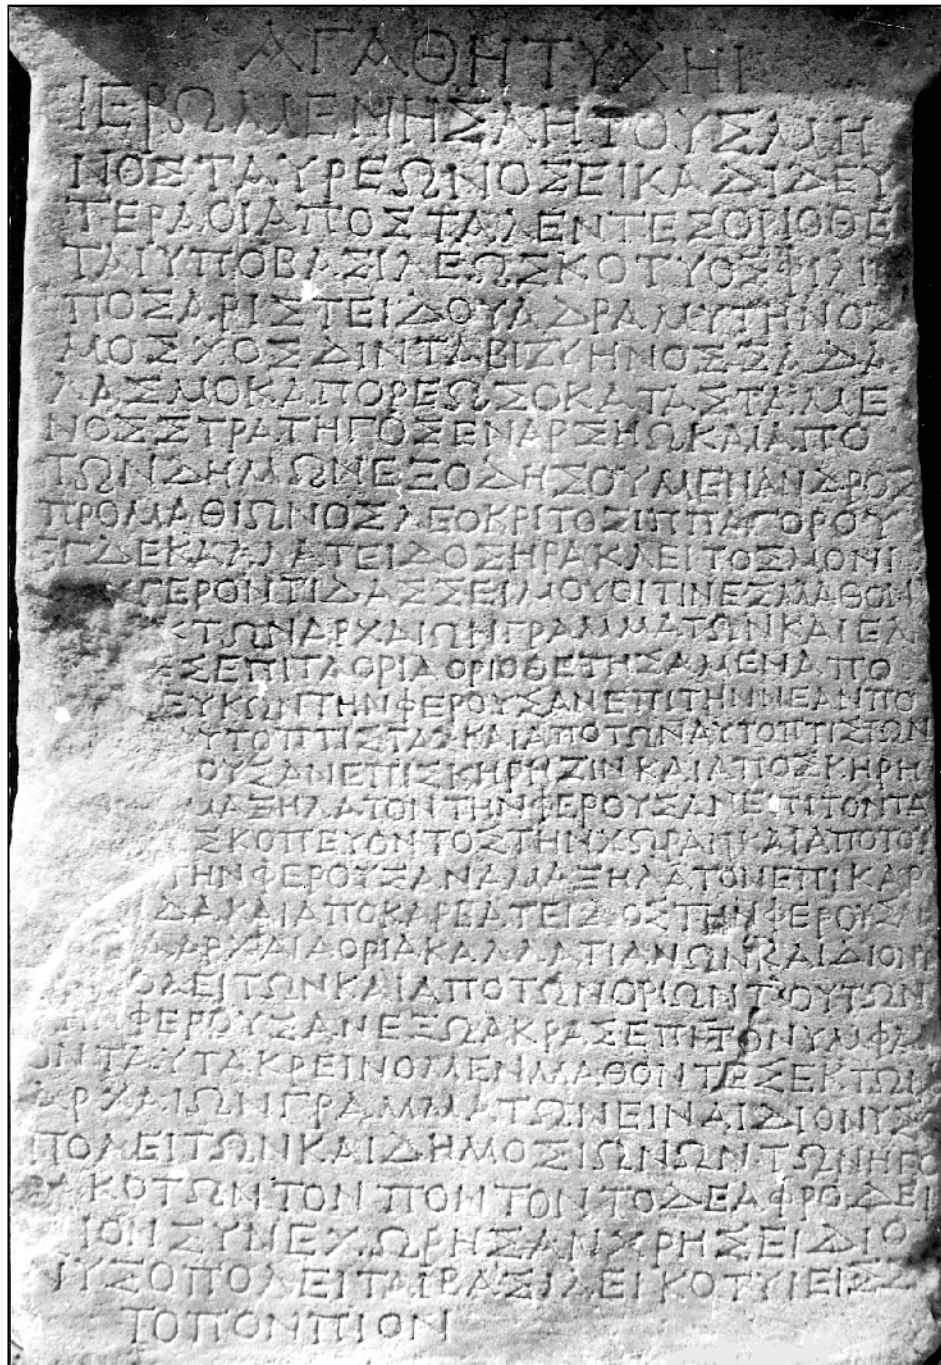 ΑΓΑΘΗΤΥΧΗΙ
ΙΕΡΩΜΕΝΗΣΛΗΤΟΥΣΜΗ
ΝΟΣΤΑΥΡΕΩΝΟΣΕΙΚΑΔΙΔΕΥ
ΤΕΡΑΟΙΑΠΟΣΤΑΛΕΝΤΕΣΟΡΙΟΘΕ
ΤΑΙΥΠΟΒΑΣΙΛΕΩΣΚΟΤΥΟΣΦΙΛΙΠ
ΠΟΣΑΡΙΣΤΕΙΔΟΥΑΔΡΑΜΥΤΗΝΟΣ
ΜΟΣΧΟΣΔΙΝΤΑΒΙΖΥΗΝΟΣΣΑΔΑ
ΛΑΣΜΟΚΑΠΟΡΕΩΣΟΚΑΤΑΣΤΑΜΕ
ΝΟΣΣΤΡΑΤΗΓΟΣΕΝΑΡΣΗΩΚΑΙΑΠΟ
ΤΩΝΔΗΜΩΝΕΞΟΔΗΣΟΥΜΕΝΑΝΔΡΟΣ
ΠΡΟΜΑΘΙΩΝΟΣΛΕΟΚΡΙΤΟΣΙΠΠΑΓΟΡΟΥ
ΕΓΔΕΚΑΛΛΑΤΕΙΔΟΣΗΡΑΚΛΕΙΤΟΣΜΟΝΙ
ΓΕΡΟΝΤΙΔΑΣΣΕΙΜΟΥΟΙΤΙΝΕΣΜΑΘΟΝ
ΚΤΩΝΑΡΧΑΙΩΝΓΡΑΜΜΑΤΩΝΚΑΙΕΛ
ΕΣΕΠΙΤΑΟΡΙΑΟΡΙΟΘΕΤΗΣΑΜΕΝΑΠΟ
ΕΥΚΩΝΤΗΝΦΕΡΟΥΣΑΝΕΠΙΤΗΝΝΕΑΝΠΟ
ΥΤΟΠΤΙΣΤΑΣΚΑΙΑΠΟΤΩΝΑΥΤΟΠΤΙΣΤΩΝ
ΟΥΣΑΝΕΠΙΣΚΗΡΗΖΙΝΚΑΙΑΠΟΣΚΗΡΗ
ΜΑΞΗΛΑΤΟΝΤΗΝΦΕΡΟΥΣΑΝΕΠΙΤΟΝΤΑ
ΣΚΟΠΕΥΟΝΤΟΣΤΗΝΧΩΡΑΝΚΑΙΑΠΟΤΟ
ΤΗΝΦΕΡΟΥΣΑΝΑΜΑΞΗΛΑΤΟΝΕΠΙΚΑΡ
ΔΑΚΑΙΑΠΟΚΑΡΒΑΤΕΙΔΟΣΤΗΝΦΕΡΟΥΣΑΝ
ΑΡΧΑΙΑΟΡΙΑΚΑΛΛΑΤΙΑΝΩΝΚΑΙΔΙΟΝΥ
ΟΛΕΙΤΩΝΚΑΙΑΠΟΤΩΝΟΡΙΩΝΤΟΥΤΩΝ
ΤΗΝΦΕΡΟΥΣΑΝΕΞΩΑΚΡΑΣΕΠΙΤΟΝΥΜΦΑΙ
ΟΝΤΑΥΤΑΚΡΕΙΝΟΜΕΝΜΑΘΟΝΤΕΣΕΚΤΩΝ
ΑΡΧΑΙΩΝΓΡΑΜΜΑΤΩΝΕΙΝΑΙΔΙΟΝΥΣ
ΠΟΛΕΙΤΩΝΚΑΙΔΗΜΟΣΙΩΝΩΝΤΩΝΗΓΟ
ΚΟΤΩΝΤΟΝΠΟΝΤΟΝΤΟΔΕΑΦΡΟΔΕΙ
ΙΟΝΣΥΝΕΧΩΡΗΣΑΝΧΡΗΣΕΙΔΙΟ
ΝΥΣΟΠΟΛΕΙΤΑΙΒΑΣΙΛΕΙΚΟΤΥΙΕΙΣ
ΤΟΠΟΝΠΙΟΝ